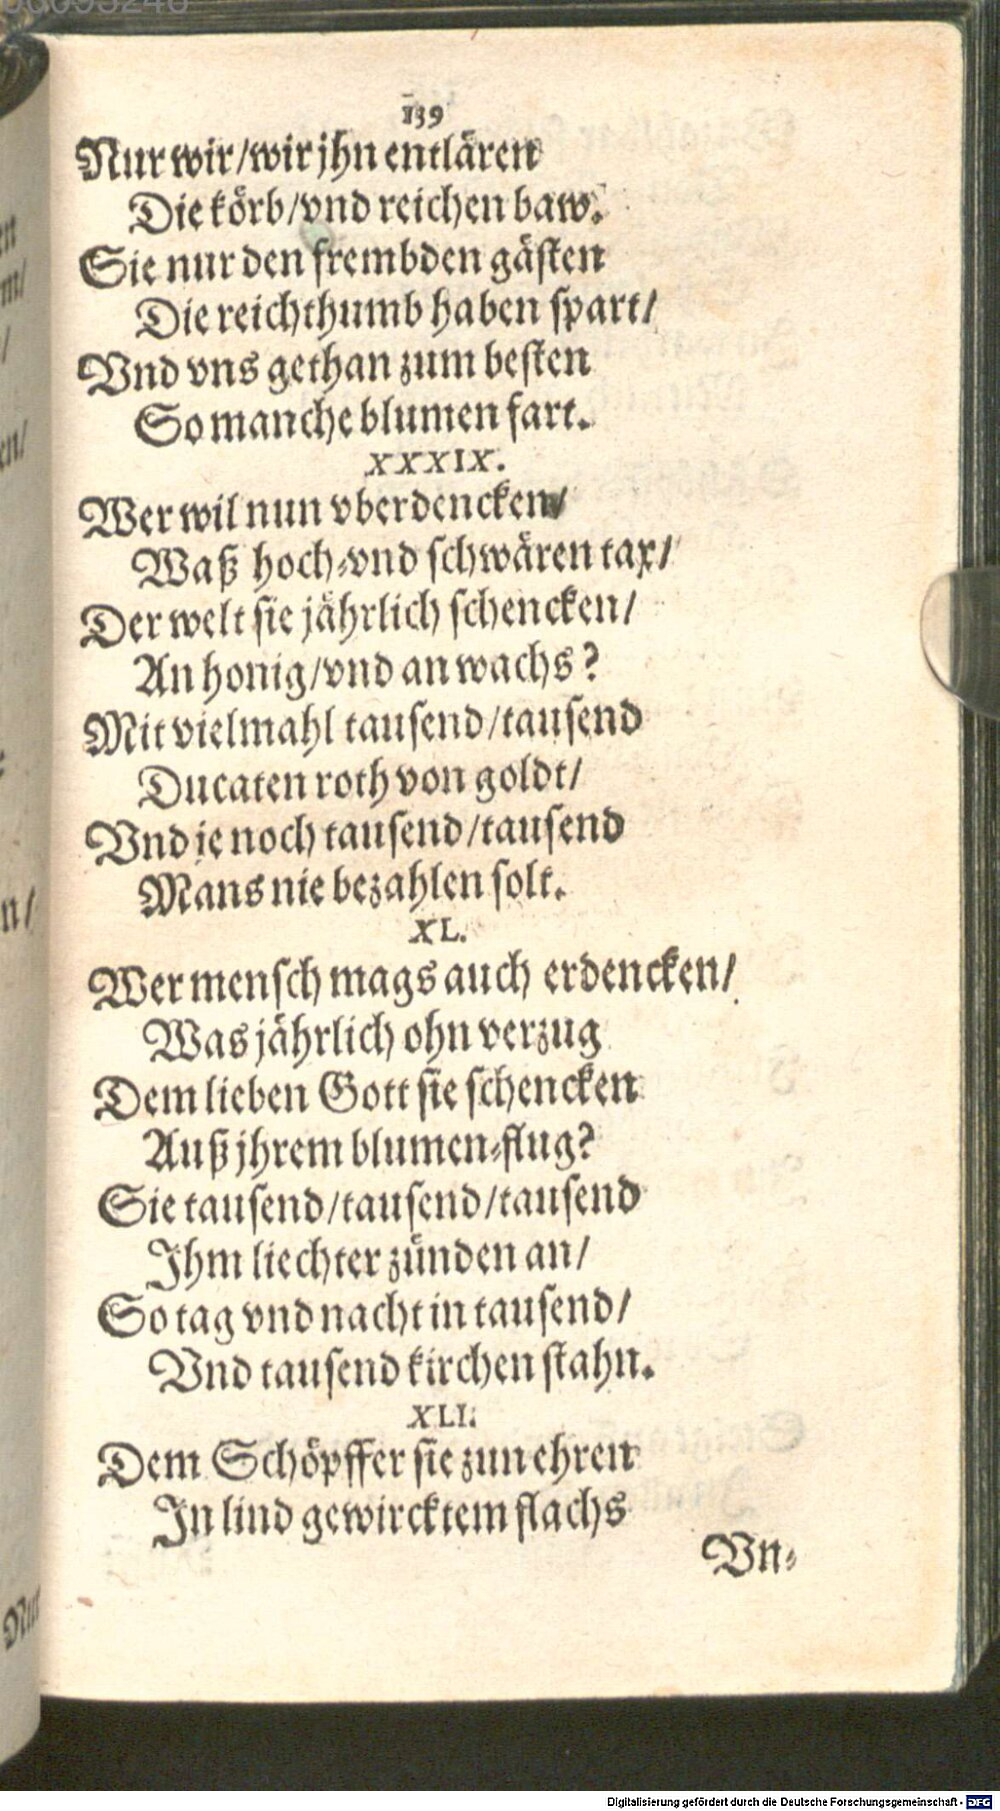 139
Nur wir/wir jhn entlären
Die körb/vnd reichen baw.
Sie nur den frembden gästen
Die reichthumb haben spart/
Vnd vns gethan zum besten
So manche blumen fart.
XXXIX.
Wer wil nun vberdencken/
Waß hoch-vnd schwären tax/
Der welt sie jährlich schencken/
An honig/vnd an wachs?
Mit vielmahl tausend/tausend
Ducaten roth von goldt/
Vnd je noch tausend/tausend
Mans nie bezahlen solt.
XL.
Wer mensch mags auch erdencken/
Was jährlich ohn verzug
Dem lieben Gott sie schencken
Auß jhrem blumen-flug?
Sie tausend/tausend/tausend
Ihm liechter zünden an/
So tag vnd nacht in tausend/
Vnd tausend kirchen stahn.
XLI.
Dem Schöpffer sie zun ehren
In lind gewircktem flachs
Vn-
Digitalisierung gefördert durch die Deutsche Forschungsgemeinschaft - DFG